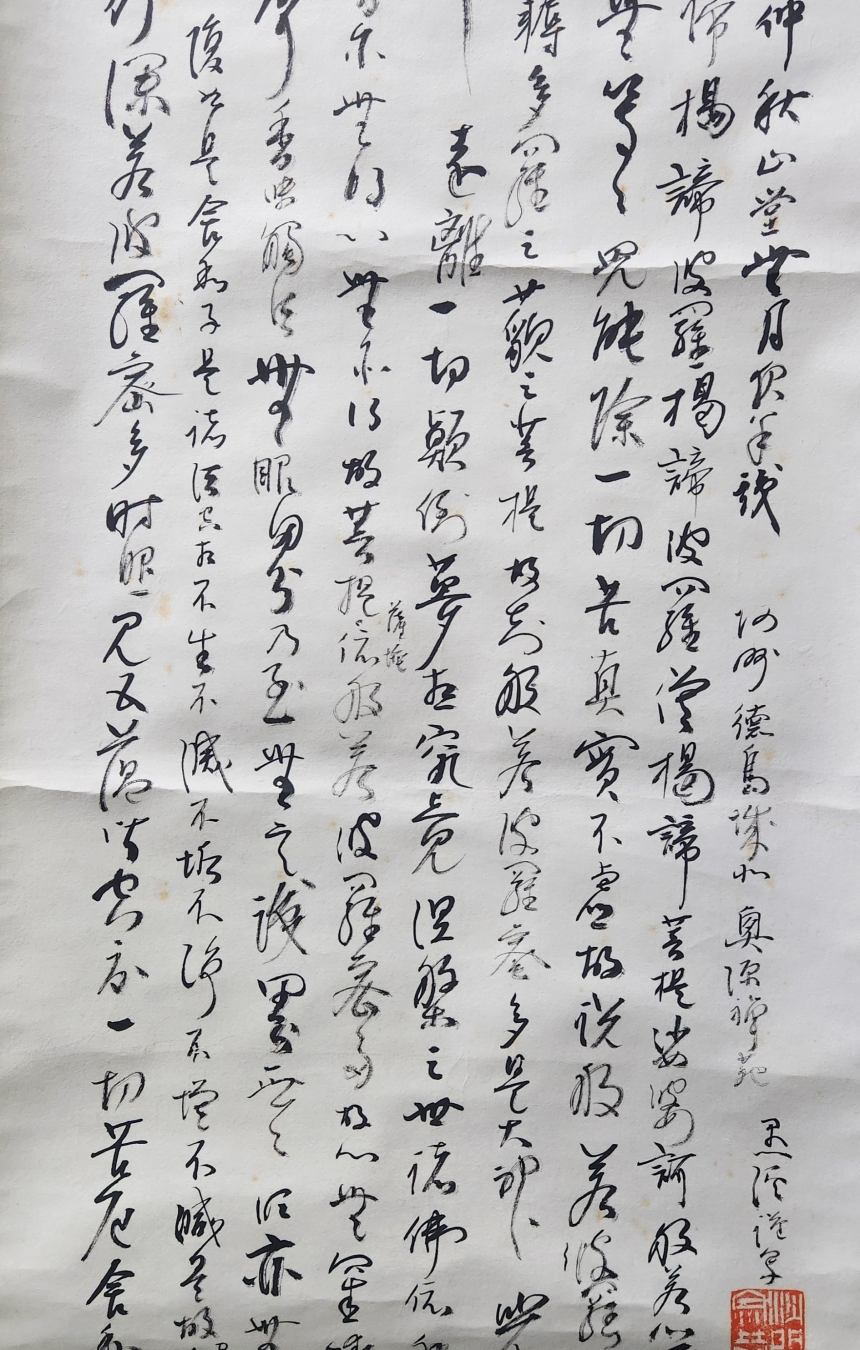 行深若波羅密多时照見五蘊皆空度一切苦厄舍利
復如是舍利子是诸法空相不生不滅不垢不淨不增不減是故
聲香味觸法無眼界乃至無意識界無〻明亦無
亦無得以無所得故菩提薩埵依般若波羅密多故心無罣礙
遠離一切顛倒夢想究竟涅槃三世諸佛依般
耨多羅三藐三菩提故知般若波羅密多是大神
無等〻咒能除一切苦真實不虛故說般若波羅
諦揭諦波羅揭諦波羅僧揭諦菩提娑婆訶般若心
仲秋山堂無月夜半 阿州德島城北